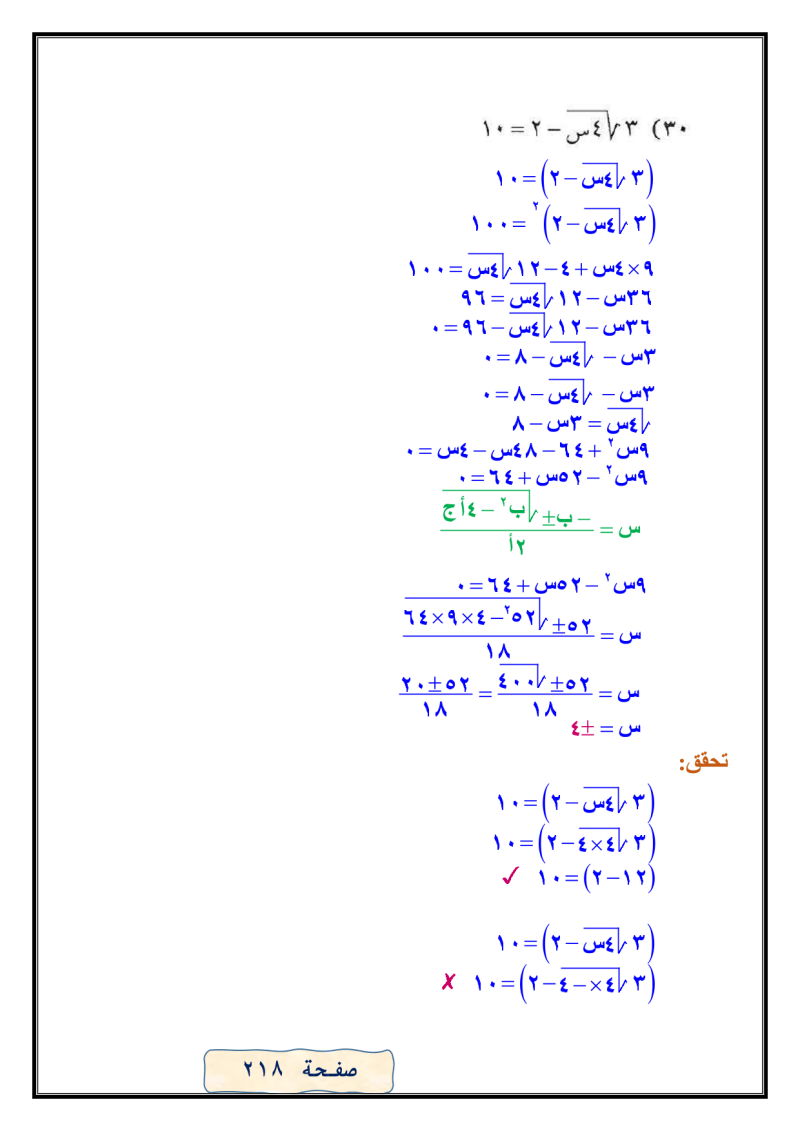 ٣٠) ٣√٤س − ٢ = ١٠
(٣√٤س − ٢) = ١٠
(٣√٤س − ٢)^٢ = ١٠٠
٩×٤س + ٤ − ١٢√٤س = ١٠٠
٣٦س − ١٢√٤س = ٩٦
٣٦س − ١٢√٤س − ٩٦ = ٠
٣س − √٤س − ٨ = ٠
٣س − √٤س − ٨ = ٠
√٤س = ٣س − ٨
٩س^٢ + ٦٤ − ٤٨س − ٤س = ٠
٩س^٢ − ٥٢س + ٦٤ = ٠
س = (−ب ± √(ب^٢ − ٤أج)) / ٢أ
٩س^٢ − ٥٢س + ٦٤ = ٠
س = (٥٢ ± √(٥٢^٢ − ٤×٩×٦٤)) / ١٨
س = (٥٢ ± √٤٠٠) / ١٨ = (٥٢ ± ٢٠) / ١٨
س = ±٤
تحقق:
(٣√٤س − ٢) = ١٠
(٣√٤×٤ − ٢) = ١٠
(١٢ − ٢) = ١٠ ✓
(٣√٤س − ٢) = ١٠
(٣√٤×−٤ − ٢) = ١٠ ✗
صفحة ٢١٨